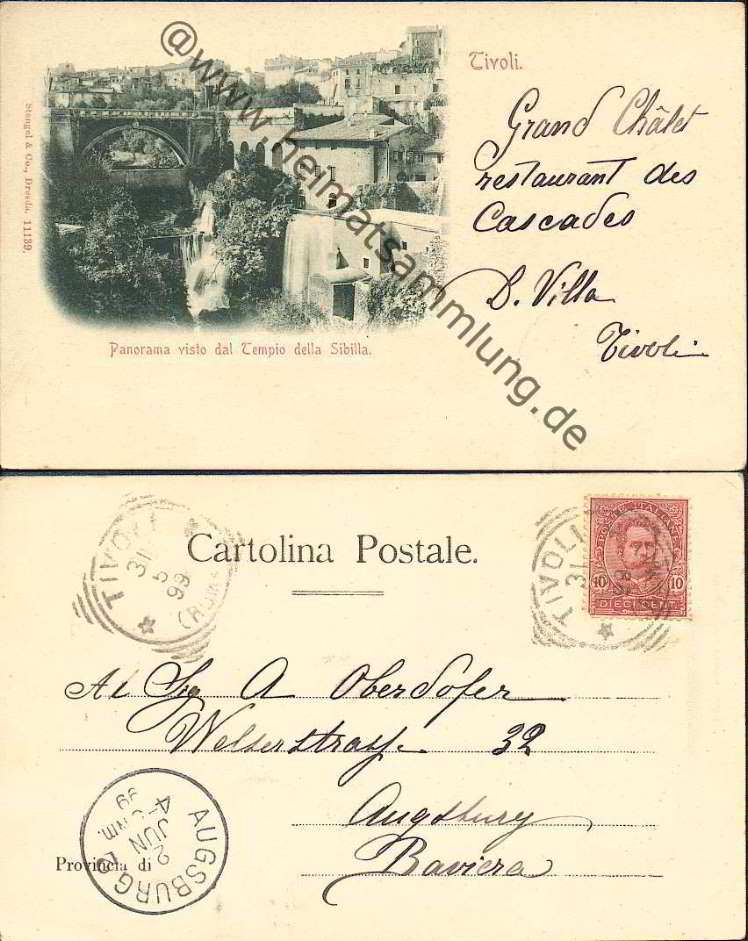 Tivoli.
Grand Châlet
restaurant des
Cascades
D. Villa
Tivoli
Stengel & Co., Dresda. 11139.
Panorama visto dal Tempio della Sibilla.
@www.heimatsammlung.de
Cartolina Postale.
TIVOLI
31
5
99
(ROMA)
TIVOLI
31
POSTE ITALIANE
10 10
DIECI CENT.
Al Sig A Oberdofer
Welserstrasse 32
Augsburg
Provincia di Baviera
AUGSBURG 2
2
JUN
4-5 NM.
99